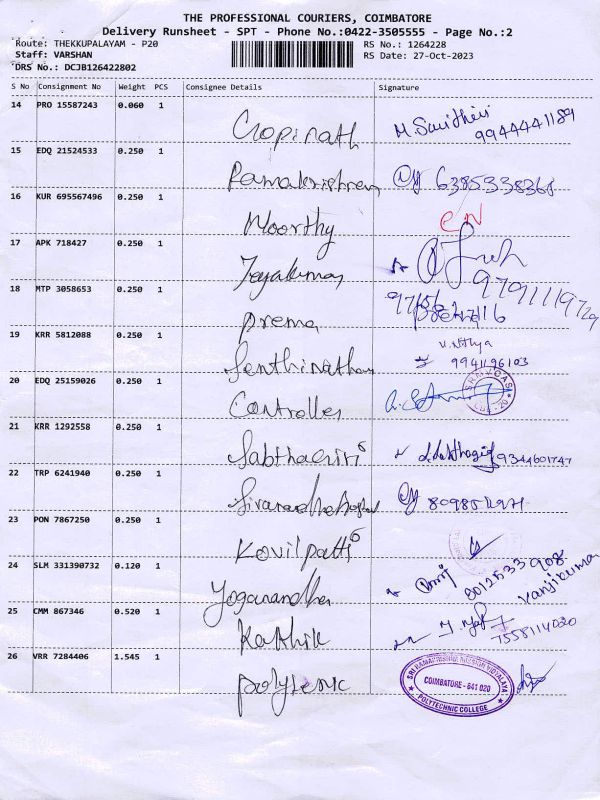 THE PROFESSIONAL COURIERS, COIMBATORE
Delivery Runsheet - SPT - Phone No.:0422-3505555 - Page No.:2
Route: THEKKUPALAYAM - P20 RS No.: 1264228
Staff: VARSHAN RS Date: 27-Oct-2023
DRS No.: DCJB126422802
S No Consignment No Weight PCS Consignee Details Signature
14 PRO 15587243 0.060 1 Gopinath 9944441189
15 EDQ 21524533 0.250 1 Ramakrishnan 6385338368
16 KUR 695567496 0.250 1 Moorthy
17 APK 718427 0.250 1 Jeyakumar
18 MTP 3058653 0.250 1 Prema
19 KRR 5812088 0.250 1 Senthinathan 9941196103
20 EDQ 25159026 0.250 1 Controller
21 KRR 1292558 0.250 1 Sabthagiri 9344601747
22 TRP 6241940 0.250 1
23 PON 7867250 0.250 1 Kovilpatti
24 SLM 331390732 0.120 1 Yoganandha 8012533908
25 CMM 867346 0.520 1 Karthik 7558114020
26 VRR 7284406 1.545 1 Polytenic
SRI RAMAKRISHNA MISSION VIDYALAYA
COIMBATORE - 641 020
POLYTECHNIC COLLEGE